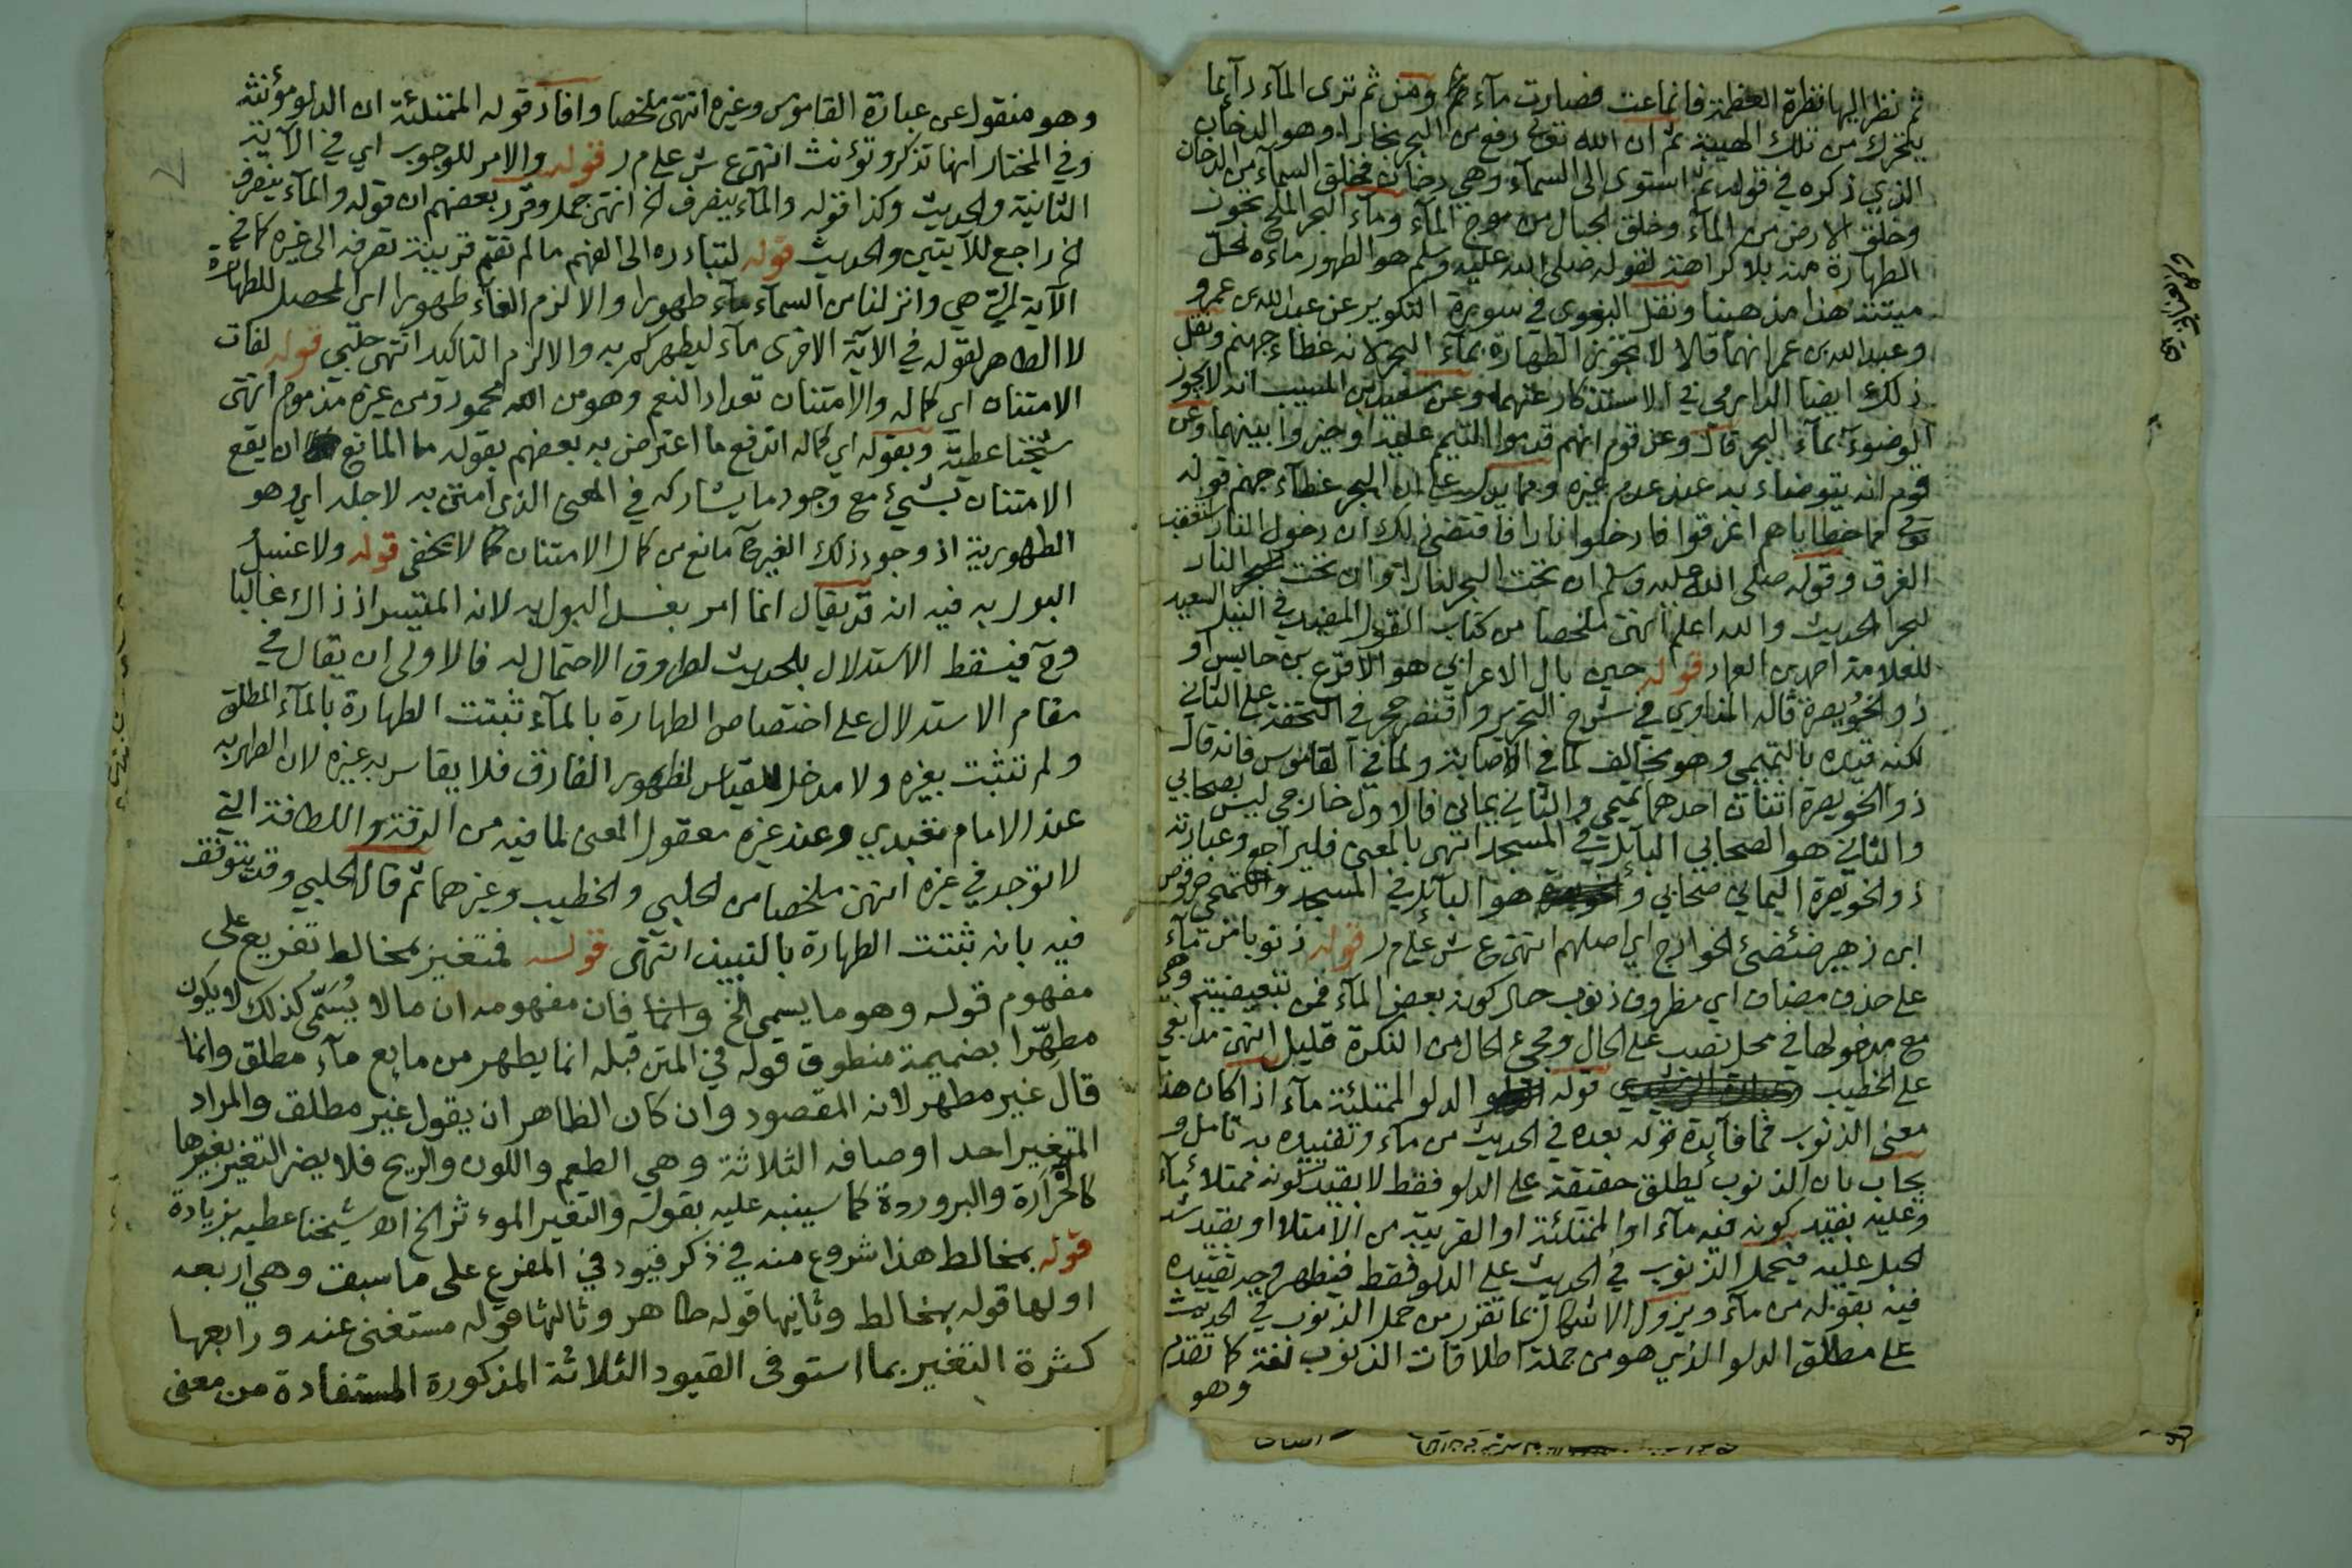 ثم نظر اليها نظرة العظمة فانماعت فصارت ماء ومن ثم ترى المآء دآئما
يتحرك من تلك الهيبة ثم ان الله تع رفع من البحر بخارا وهو الدخان
الذي ذكره في قوله ثم استوى الى السمآء وهي دخان فخلق السمآء من الدخان
وخلق الارض من المآء وخلق الجبال من موج المآء ومآء البحر الملح تجوز
الطهارة منه بلا كراهة لقوله صلى الله عليه وسلم هو الطهور ماءه الحل
ميتته هذا مذهبنا ونقل البغوى في سورة التكوير عن عبد الله بن عمرو
وعبد الله بن عمر انهما قالا لا تجوز الطهارة بمآء البحر لانه غطاء جهنم ونقل
ذلك ايضا الدارمي في الاستذكار عنهما وعن سعيد بن المسيب انه لا يجوز
الوضوء بمآء البحر قال وعن قوم انهم قدموا التيمم عليه او خيروا بينهما وعن
قوم انه يتوضاء به عند عدم غيره ومما يدل على ان البحر غطآء جهنم قوله
تع مما خطاياهم اغرقوا فادخلوا نارا فاقتضى ذلك ان دخول النار
الغرق وقوله صلى الله عليه وسلم ان تحت البحر لنارا وان تحت النار
لبحرا الحديث والله اعلم انتهى ملخصا من كتاب القول المفيد في النيل السعيد
للعلامة احمد بن العماد قوله حين بال الاعرابي هو الاقرع بن حابس او
ذو الخويصرة قاله المناوي في شرح التحرير واقتصر حجر في التحفة على الثاني
لكنه قيده بالتميمي وهو مخالف لما في الاصابة ولما في القاموس فانه قال
ذو الخويصرة اثنان احدهما تميمي والثاني يماني فالاول خارجي ليس بصحابي
والثاني هو الصحابي البآئل في المسجد انتهى بالمعنى فليراجع وعبارته
ذو الخويصرة اليماني صحابي وهو البآئل في المسجد والتميمي حرقوص
ابن زهير ضئضئ الخوارج اي اصلهم انتهى ع ش على م ر قوله ذنوبا من مآء
على حذف مضاف اي مظروف ذنوب حال كونه بعض المآء فمن تبعيضية وهي
مع مدخولها في محل نصب على الحال ومجيء الحال من النكرة قليل انتهى مدابغي
على الخطيب قوله الدلو الممتلئة مآء اذا كان هذا
معنى الذنوب فما فآئدة قوله بعده في الحديث من مآء وتقييده به تامل و
يجاب بان الذنوب يطلق حقيقة على الدلو فقط لا بقيد كونه ممتلأ بمآء
وعليه بقيد كونه فيه مآء او الممتلئة او القريبة من الامتلا او بقيد شد
الحبل عليه فيحمل الذنوب في الحديث على الدلو فقط فيظهر وجه تقييده
فيه بقوله من مآء ويزول الاشكال بما تقرر من حمل الذنوب في الحديث
على مطلق الدلو الذي هو من جملة اطلاقات الذنوب لغة كما تقدم
وهو
وهو منقول عن عبارة القاموس وغيره انتهى ملخصا وافاد قوله الممتلئة ان الدلو مؤنثه
وفي المختار انها تذكر وتؤنث انتهى ع ش على م ر قوله والامر للوجوب اي في الآية
الثانية والحديث وكذا قوله والمآء ينصرف الخ انتهى جمل وقرر بعضهم ان قوله والمآء ينصرف
الخ راجع للآيتين والحديث قوله لتبادره الى الفهم ما لم تقم قرينة تصرفه الى غيره كما في
الآية التي هي وانزلنا من السمآء مآء طهورا والا لزم الغاء طهورا اي المحصل للطهارة
لا الطاهر لقوله في الآية الاخرى مآء ليطهركم به والا لزم التاكيد انتهى حلبي قوله لفات
الامتنان اي كماله والامتنان تعداد النعم وهو من الله محمود ومن غيره مذموم انتهى
شيخنا عطية وبقوله اي كماله اندفع ما اعترض به بعضهم بقوله ما المانع ان يقع
الامتنان بشيء مع وجود ما يشاركه في المعنى الذي امتن به لاجله اي وهو
الطهورية اذ وجود ذلك الغير مانع من كمال الامتنان كما لا يخفى قوله ولا غسل
البول به فيه انه قد يقال انما امر بغسل البول به لانه المتيسر اذ ذاك غالبا
وح فيسقط الاستدلال بالحديث لطروق الاحتمال له فالاولى ان يقال في
مقام الاستدلال على اختصاص الطهارة بالمآء ثبتت الطهارة بالمآء المطلق
ولم تثبت بغيره ولا مدخل للقياس لظهور الفارق فلا يقاس به غيره لان الطهر به
عند الامام تعبدي وعند غيره معقول المعنى لما فيه من الرقة واللطافة التي
لا توجد في غيره انتهى ملخصا من الحلبي والخطيب وغيرهما ثم قال الحلبي وقد يتوقف
فيه بانه ثبتت الطهارة بالنبيذ انتهى قوله فمتغير بمخالط تفريع على
مفهوم قوله وهو ما يسمى الخ وانما فان مفهومه ان ما لا يسمى كذلك لا يكون
مطهرا بضميمة منطوق قوله في المتن قبله انما يطهر من مايع مآء مطلق وانما
قال غير مطهر لانه المقصود وان كان الظاهر ان يقول غير مطلق والمراد
المتغير احد اوصافه الثلاثة وهي الطعم واللون والريح فلا يضر التغير بغيرها
كالحرارة والبرودة كما سينبه عليه بقوله والتغير الموءثر الخ اه شيخنا عطيه بزيادة
قوله بمخالط هذا شروع منه في ذكر قيود في المفرع على ما سبق وهي اربعه
اولها قوله بمخالط وثانيها قوله طاهر وثالثها قوله مستغنى عنه ورابعها
كثرة التغير بما استوفى القيود الثلاثة المذكورة المستفادة من معنى